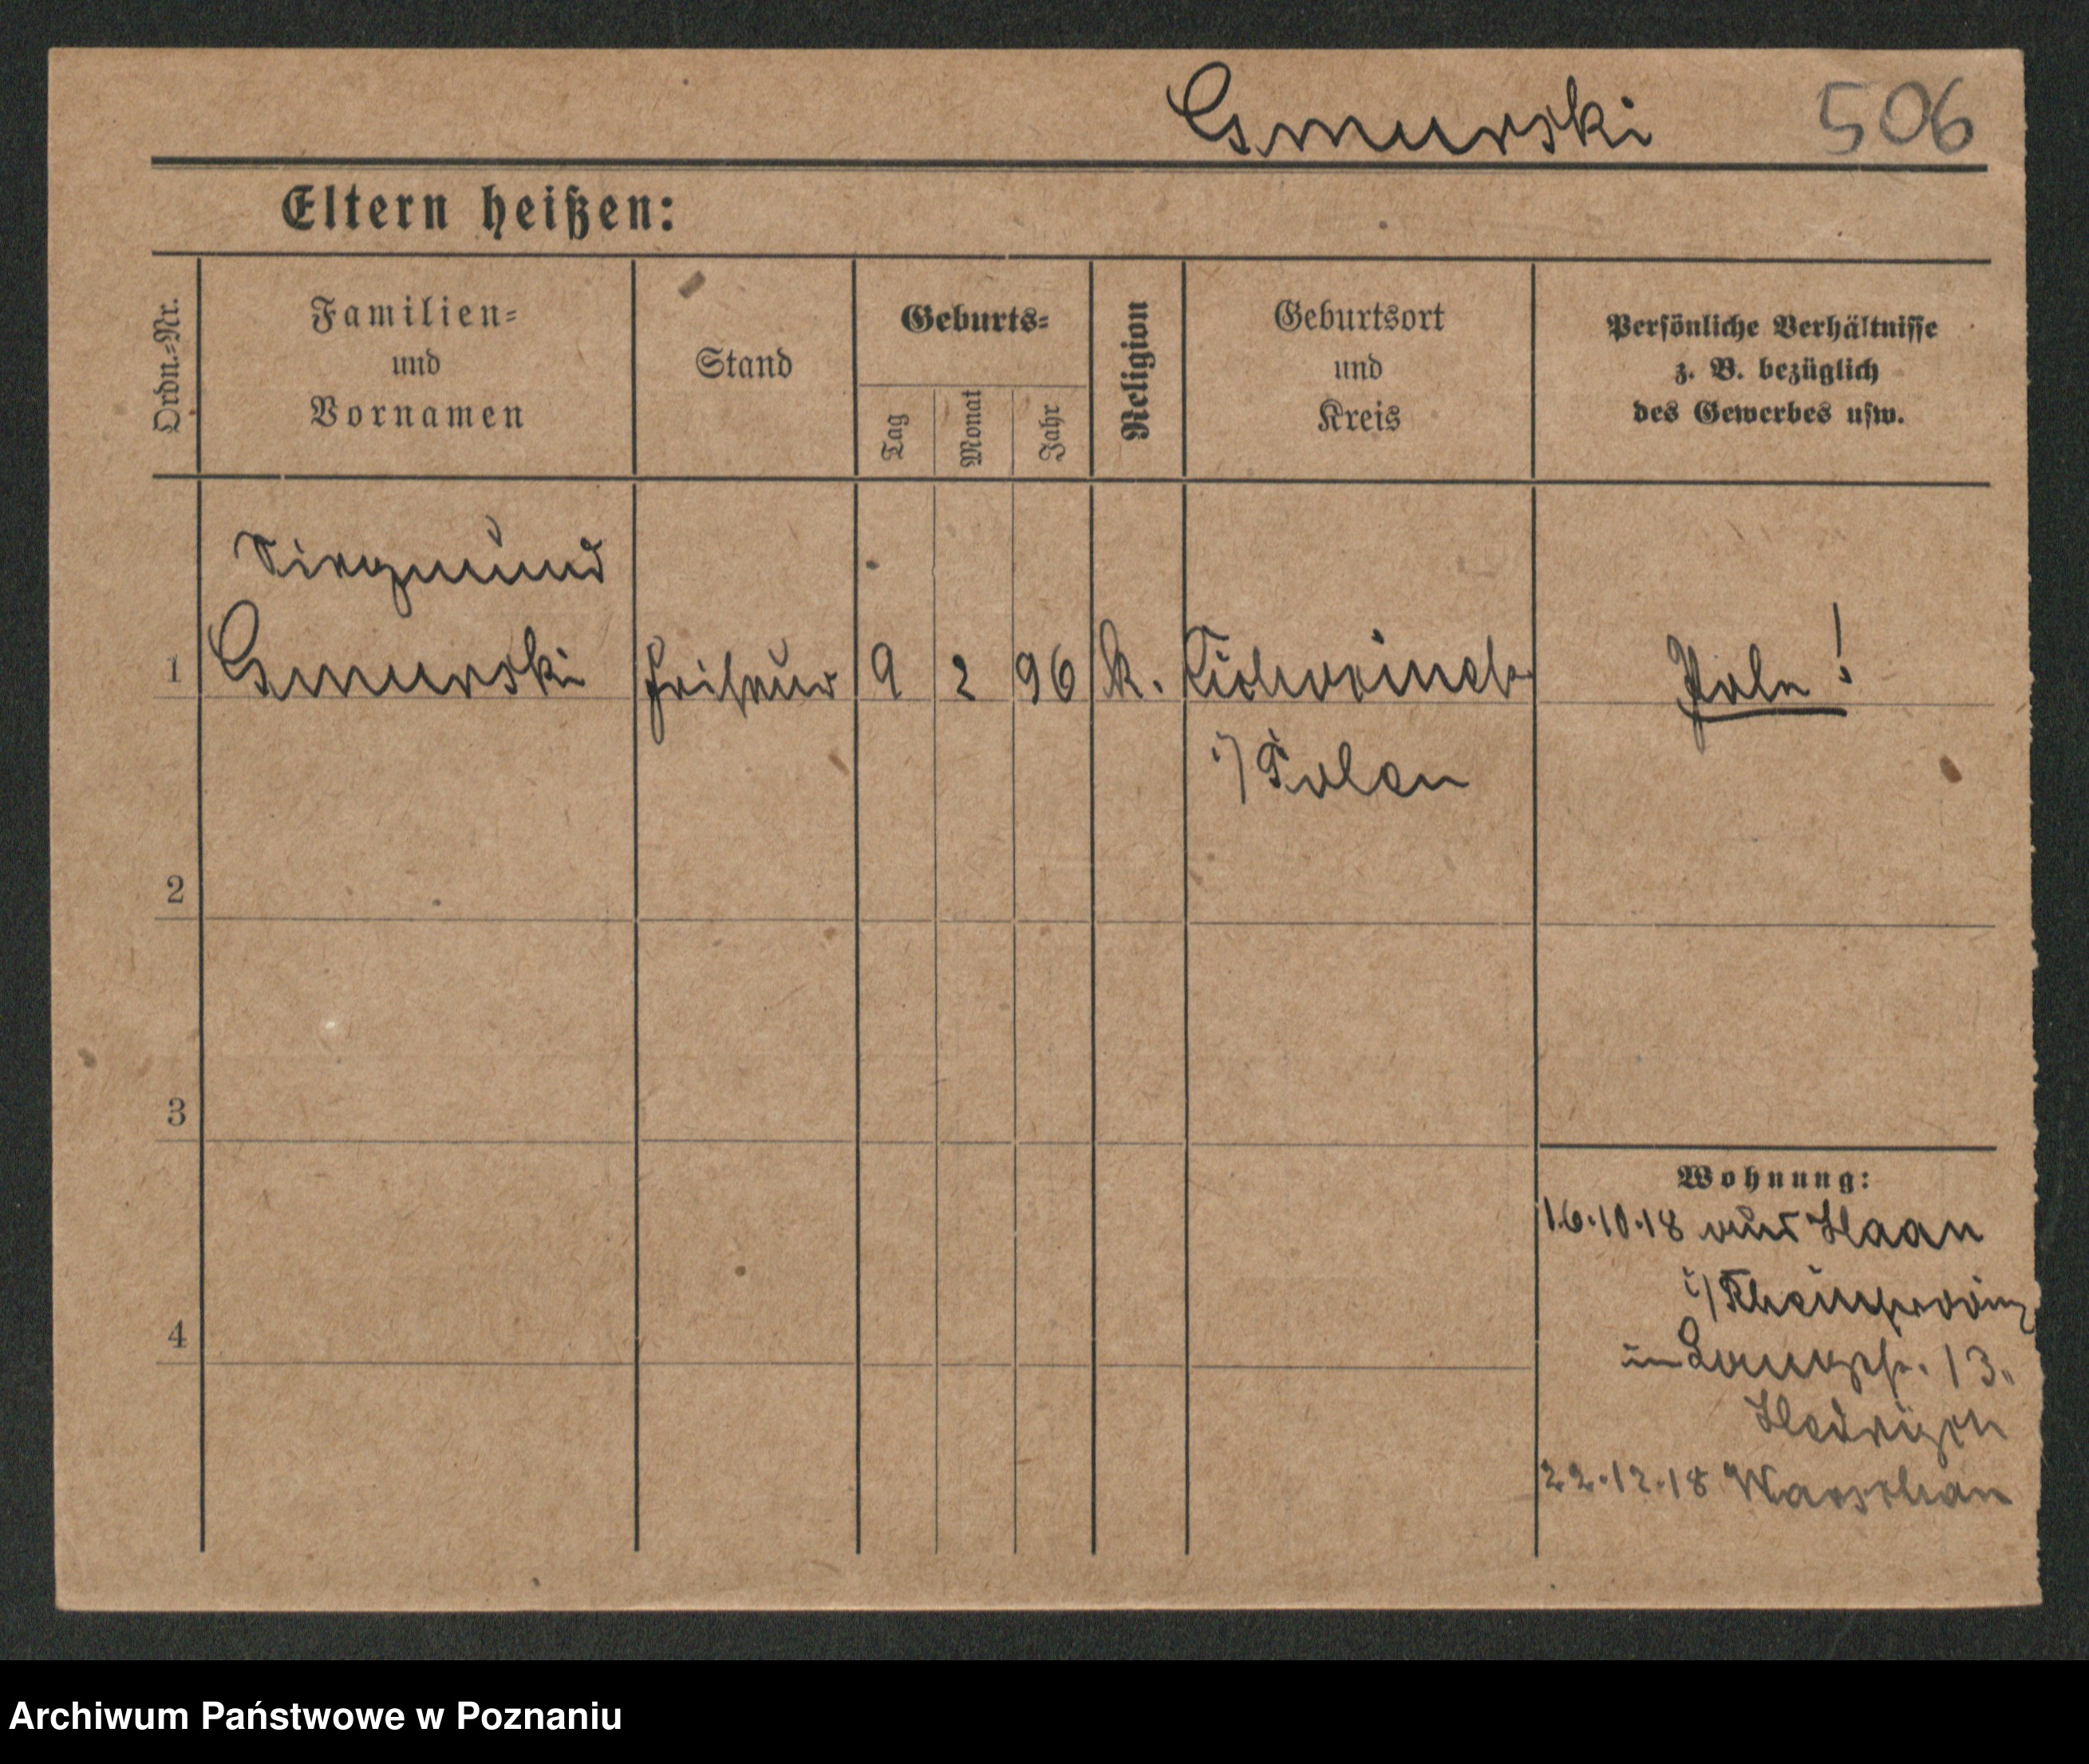 Gmurski 506
Eltern heißen:
Ordn.=Nr.
Familien=
und
Vornamen
Stand
Geburts=
Tag
Monat
Jahr
Religion
Geburtsort
und
Kreis
Persönliche Verhältnisse
z. B. bezüglich
des Gewerbes usw.
Siegmund
1 Gmurski Friseur 9 2 96 k. Pole!
i/ Polen
2
3
4
Wohnung:
16.10.18 aus Haan
i/ Rheinprovinz
in 13.
22.12.18 Warschau
Archiwum Państwowe w Poznaniu